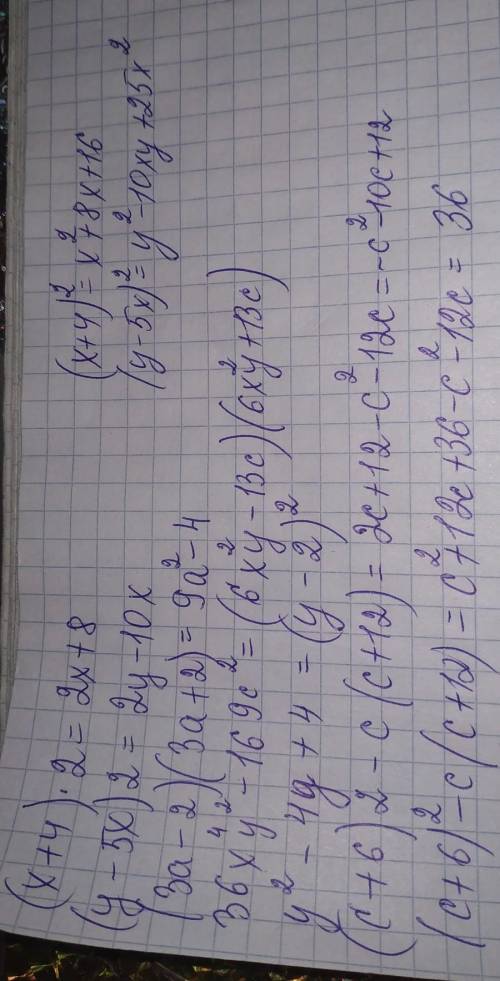 (x+4)·2 = 2x+8
(x+4)² = x²+8x+16
(y-5x)2 = 2y-10x
(y-5x)² = y²-10xy+25x²
(3a-2)(3a+2) = 9a²-4
36x⁴y²-169c² = (6x²y-13c)(6x²y+13c)
y²-4y+4 = (y-2)²
(c+6)2-c(c+12) = 2c+12-c²-12c = -c²-10c+12
(c+6)²-c(c+12) = c²+12c+36-c²-12c = 36